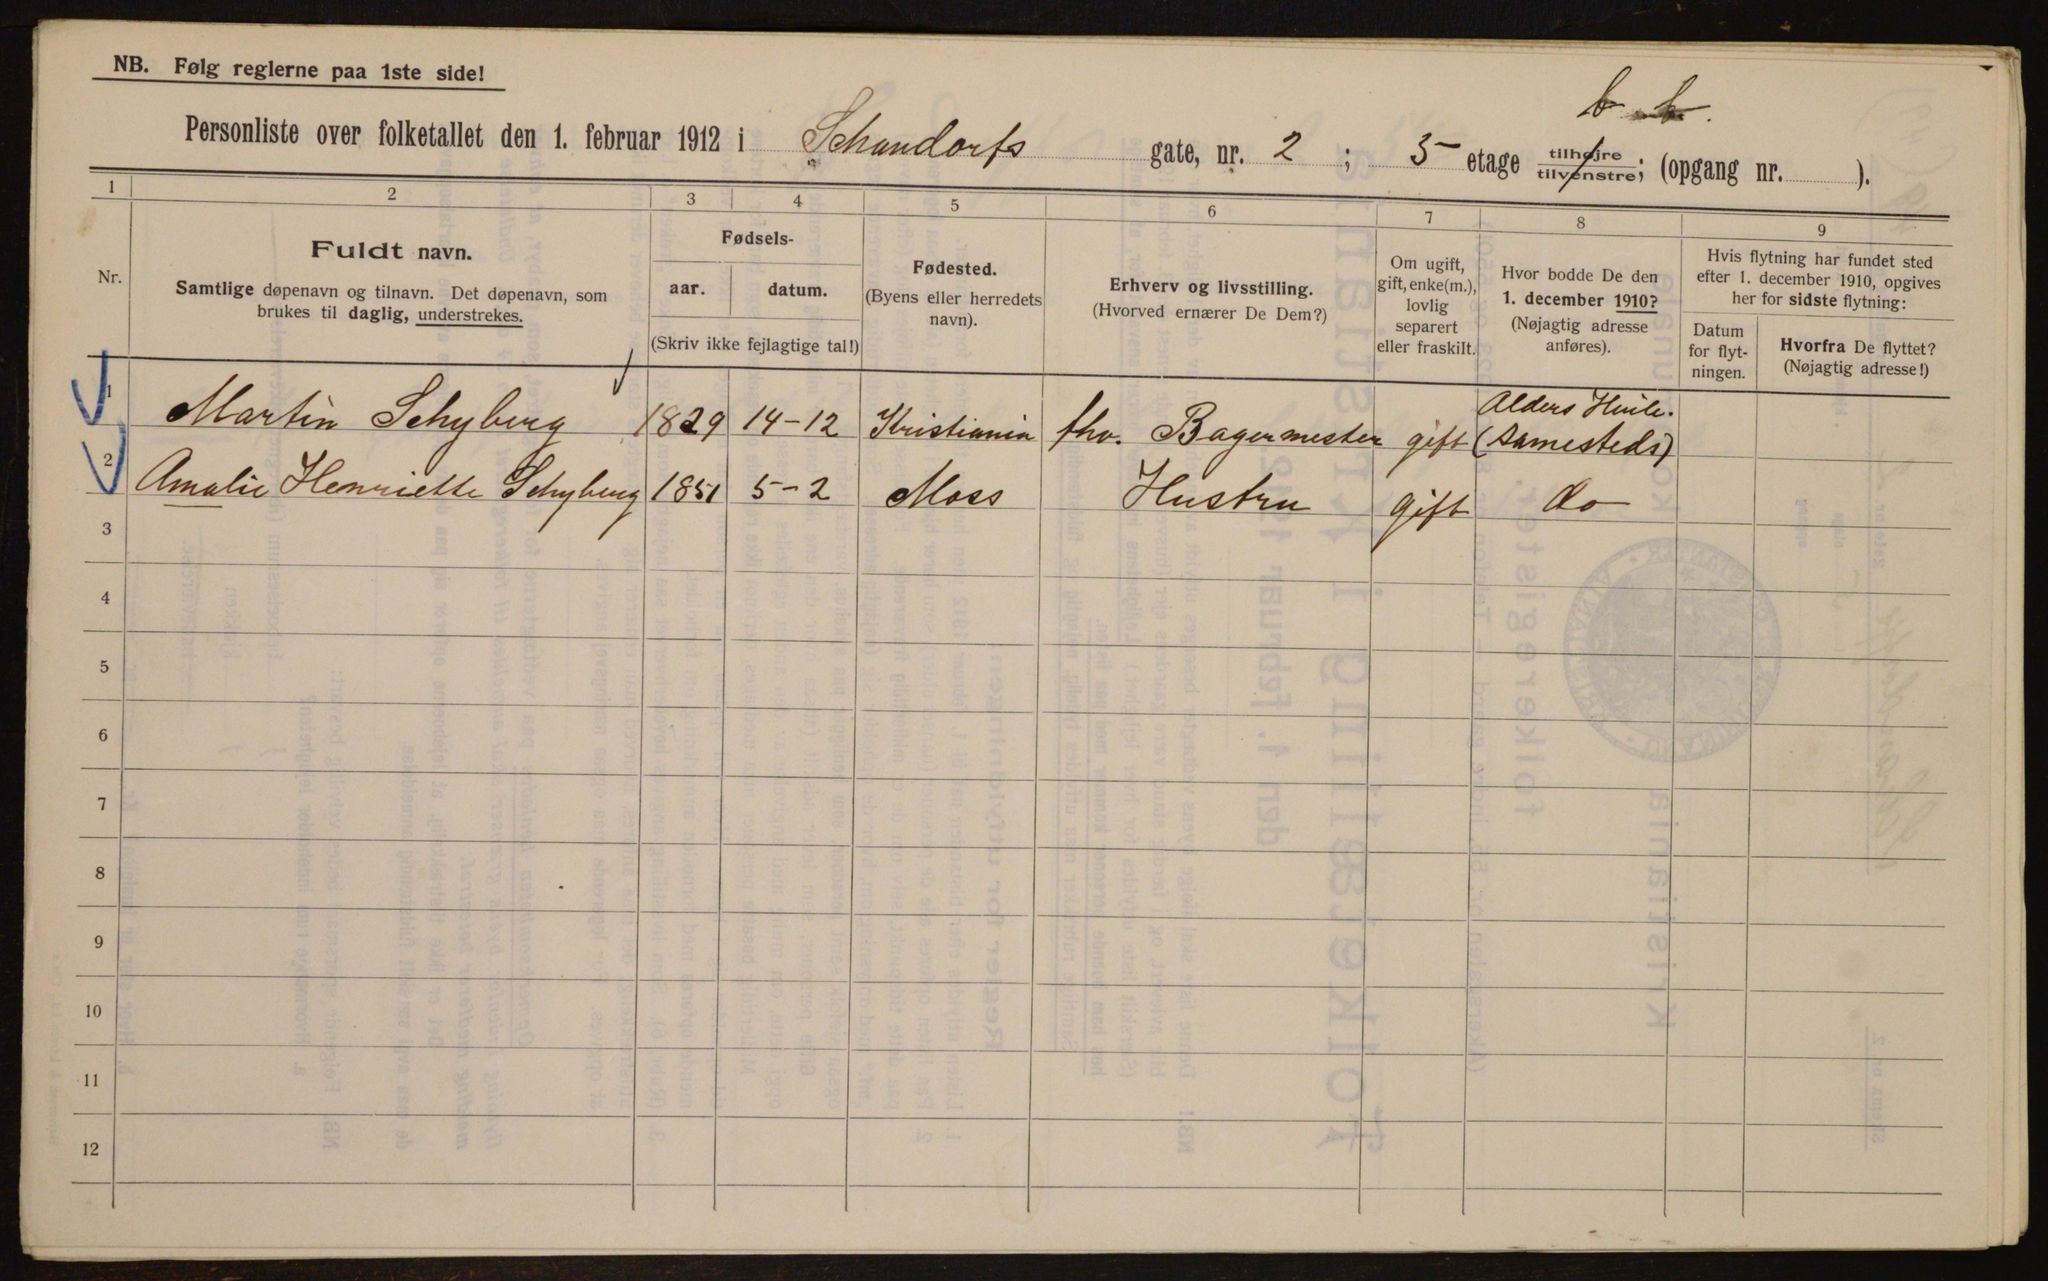 NB. Følg reglerne paa 1ste side!
b. b.
Personliste over folketallet den 1. februar 1912 i Schandorfs gate, nr. 2 ; 3 etage tilhøjre tilvenstre; (opgang nr. ).
1 2 3 4 5 6 7 8 9
Nr.
Fuldt navn.
Samtlige døpenavn og tilnavn. Det døpenavn, som
brukes til daglig, understrekes.
Fødsels-
aar. datum.
(Skriv ikke fejlagtige tal!)
Fødested.
(Byens eller herredets
navn).
Erhverv og livsstilling.
(Hvorved ernærer De Dem?)
Om ugift,
gift, enke(m.),
lovlig
separert
eller fraskilt.
Hvor bodde De den
1. december 1910?
(Nøjagtig adresse
anføres).
Hvis flytning har fundet sted
efter 1. december 1910, opgives
her for sidste flytning:
Datum
for flyt-
ningen.
Hvorfra De flyttet?
(Nøjagtig adresse!)
1 Martin Schyberg 1829 14-12 Kristiania fhv. Bagermester gift Alders Hvile.
(samesteds)
2 Amalie Henriette Schyberg 1851 5-2 Moss Hustru gift do
3
4
5
6
7
8
9
10
11
12